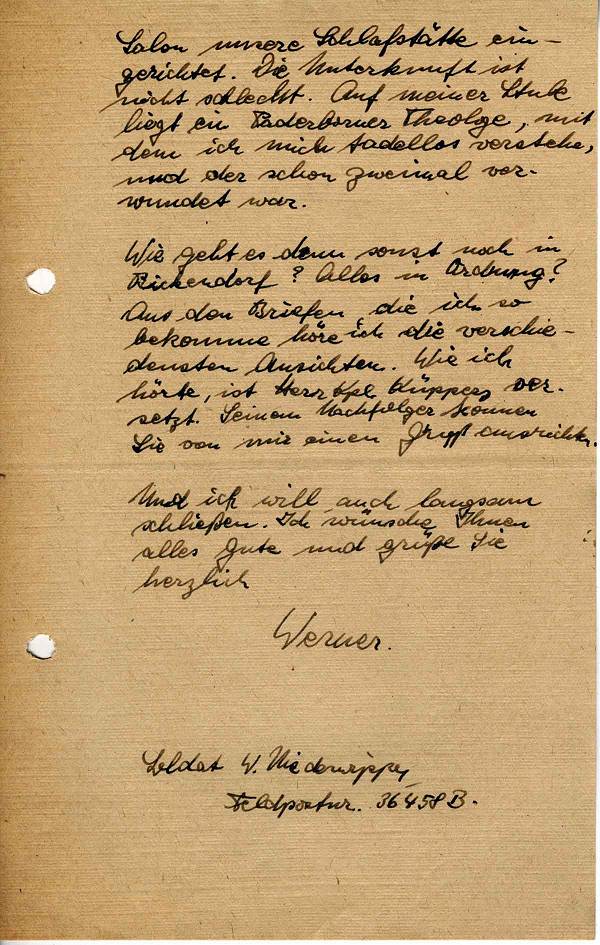 Salon unsere Schlafstätte ein-
gerichtet. Die Unterkunft ist
nicht schlecht. Auf meiner Stube
liegt ein Paderborner Theologe, mit
dem ich mich tadellos verstehe,
und der schon zweimal ver-
wundet war.
Wie geht es denn sonst noch in
Bickendorf? Alles in Ordnung?
Aus den Briefen, die ich so
bekomme höre ich die verschie-
densten Ansichten. Wie ich
hörte, ist Herr Kpl. Küppers ver-
setzt. Seinem Nachfolger können
Sie von mir einen Gruß ausrichten.
Und ich will auch langsam
schließen. Ich wünsche Ihnen
alles Gute und grüße Sie
herzlich
Werner.
Soldat W.
Feldpostnr. 36458 B.